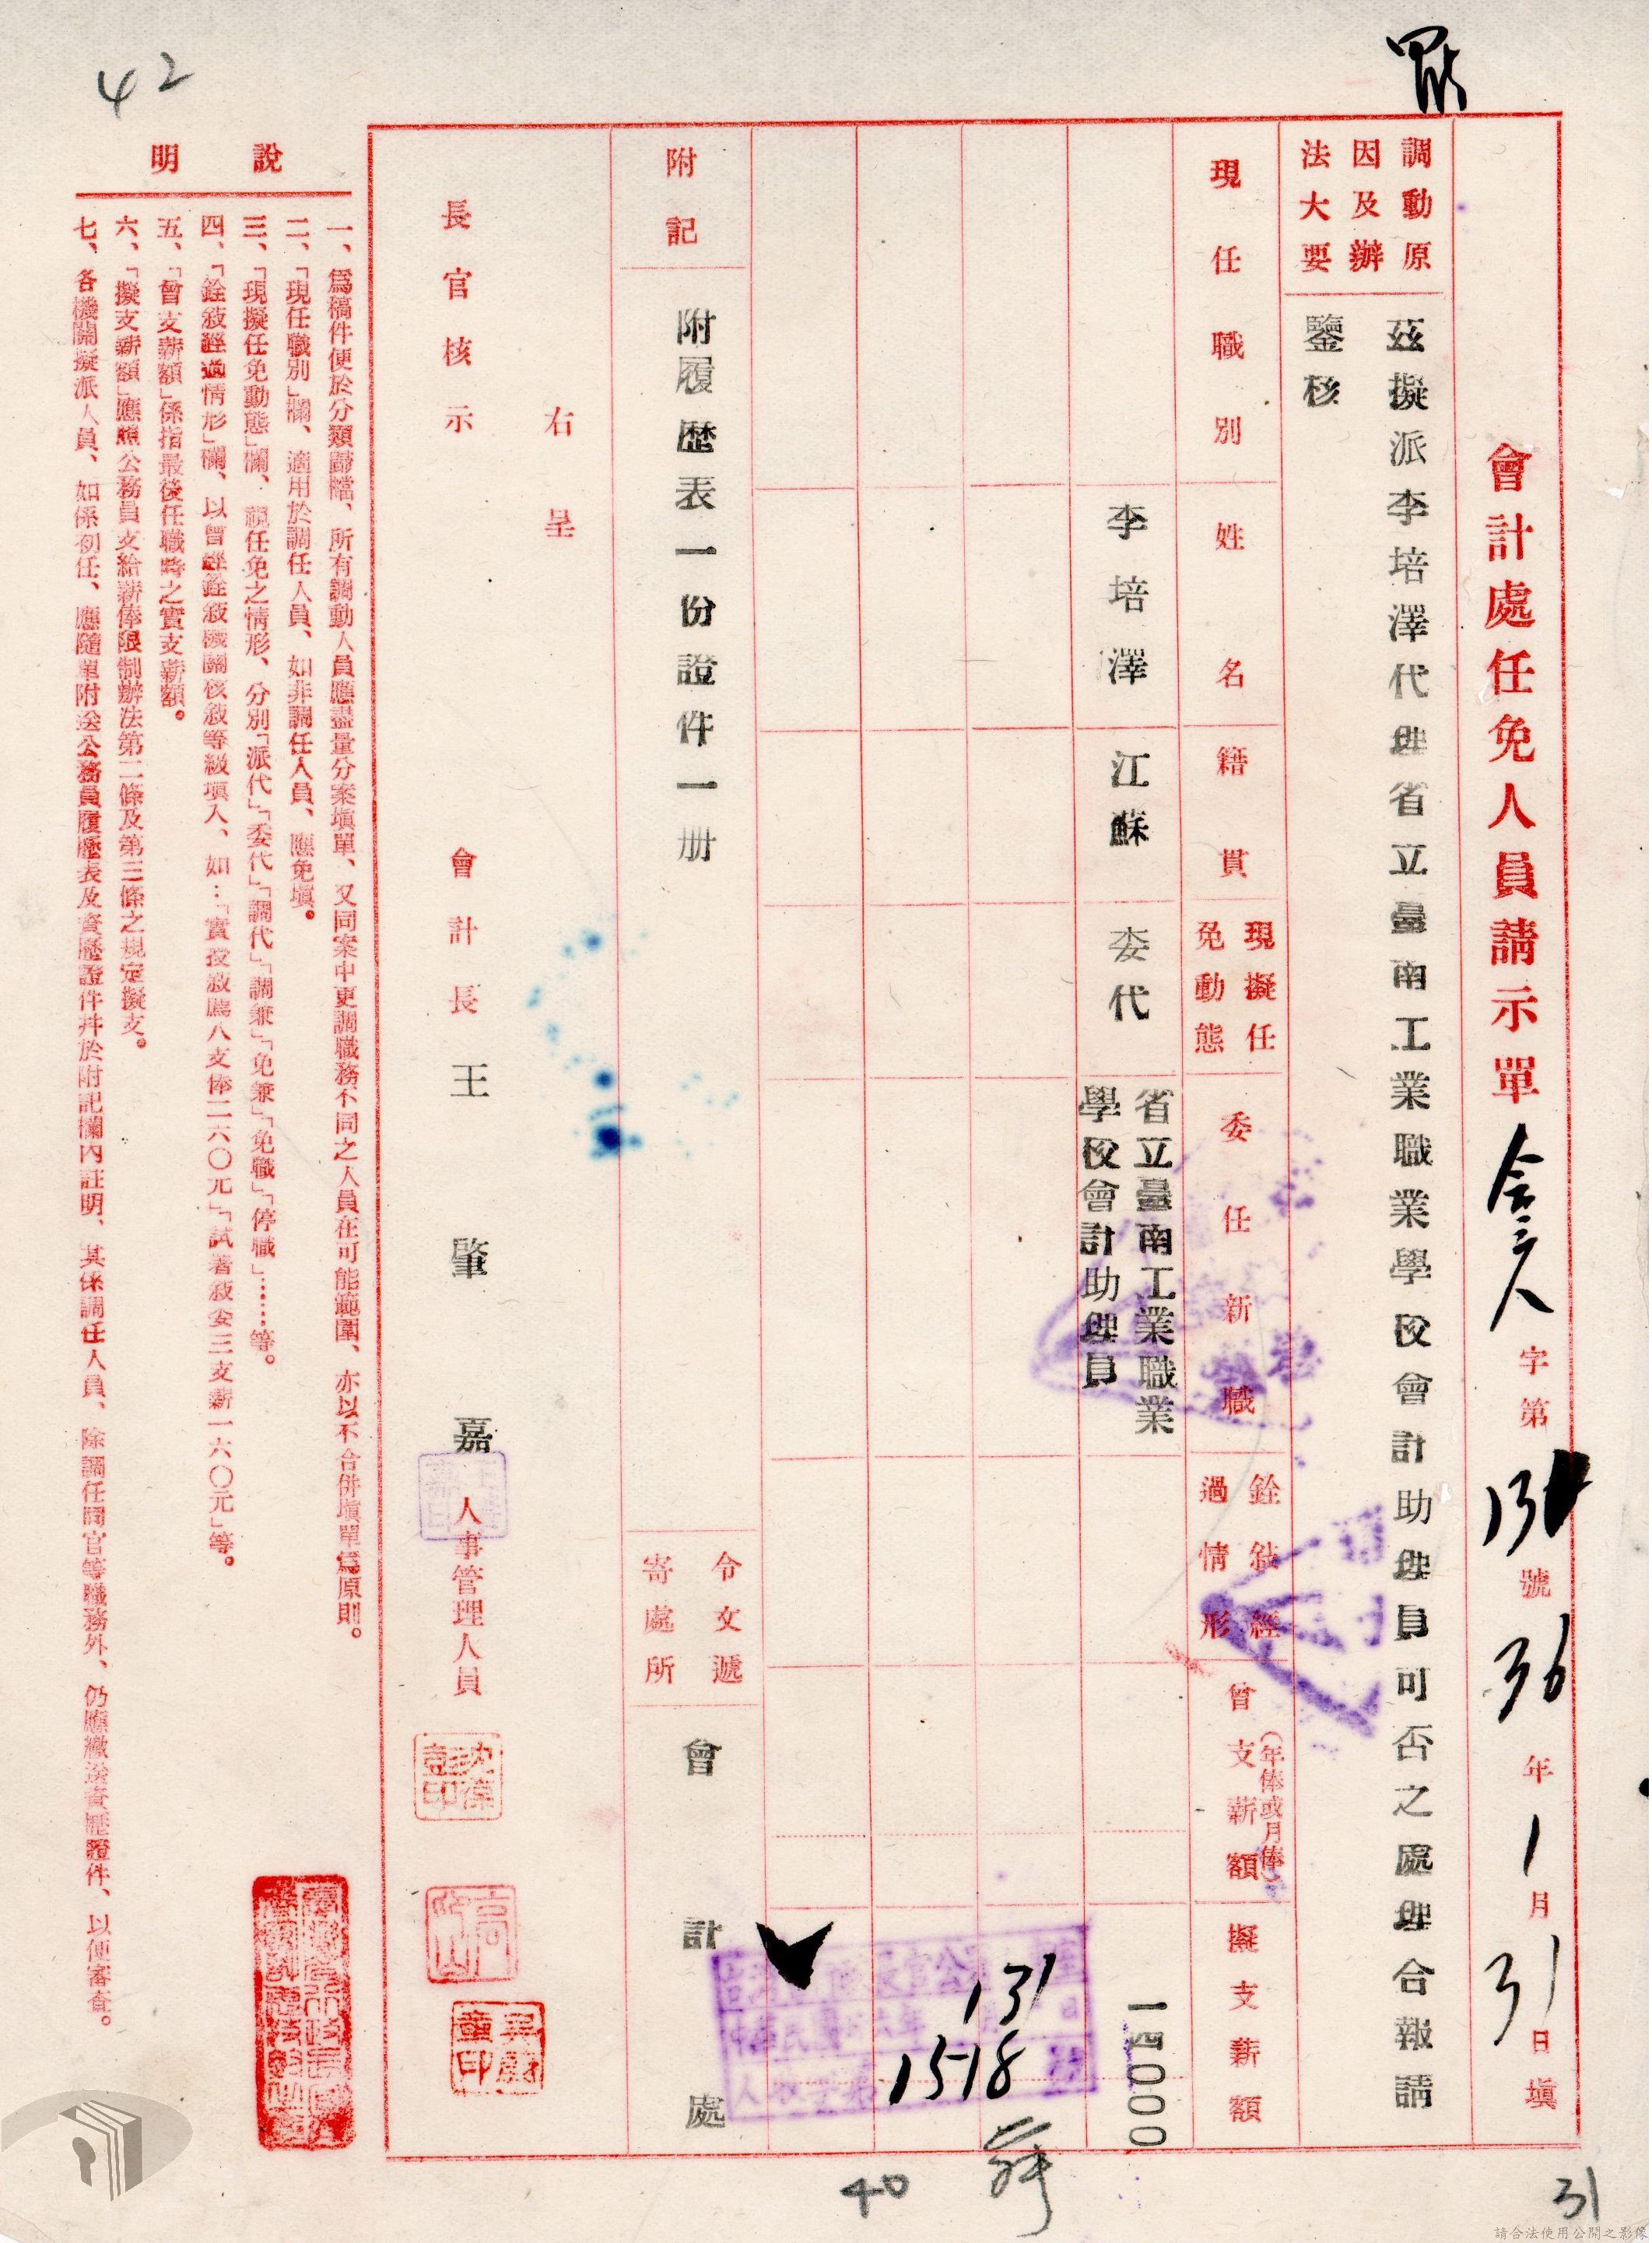 會計處任免人員請示單
會人字第13號36年1月31日填
調動原因及辦法大要
茲擬派李培澤代理省立臺南工業職業學校會計助理員可否之處理合報請
鑒核
現任職別
姓名
籍貫
現擬任免動態
委任新職
銓敍經過情形
曾支薪額(年俸或月俸)
擬支薪額
李培澤
江蘇
委代
省立臺南工業職業
學校會計助理員
一四〇〇〇
131
1518
附記
附履歷表一份證件一册
令文遞寄處所
會計處
右呈
長官核示
會計長王肇嘉
人事管理人員
說明
一、爲稿件便於分類歸檔、所有調動人員應盡量分案塡單、又同案中更調職務不同之人員在可能範圍、亦以不合併塡單爲原則。
二、「現任職別」欄、適用於調任人員、如非調任人員、應免塡。
三、「現擬任免動態」欄、視任免之情形、分別「派代」「委代」「調代」「調兼」「免兼」「免職」「停職」……等。
四、「銓敍經過情形」欄、以曾經銓敍機關核敍等級塡入、如…「實授敍薦八支俸二六〇元」「試署敍委三支薪一六〇元」等。
五、「曾支薪額」係指最後任職時之實支薪額。
六、「擬支薪額」應照公務員支給薪俸限制辦法第二條及第三條之規定擬支。
七、各機關擬派人員、如係初任、應隨單附送公務員履歷表及資歷證件幷於附記欄內註明、其係調任人員、除調任同官等職務外、仍應繳送資歷證件、以便審查。
42
40
31
請合法使用公開之影像